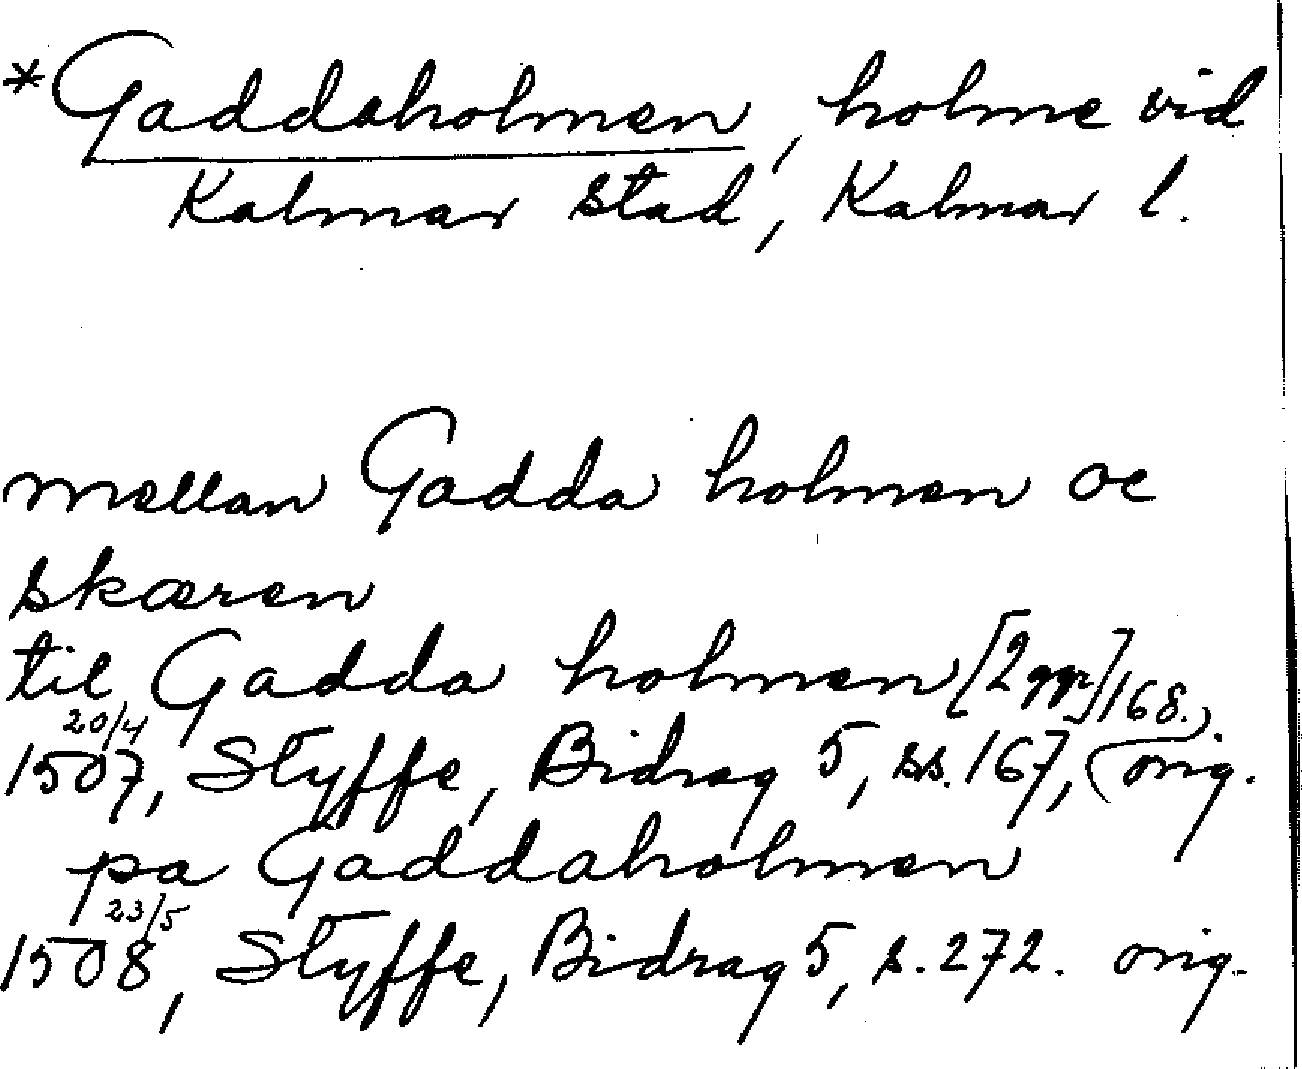 *Gaddaholmen, holme vid
Kalmar stad, Kalmar l.
mellan Gadda holmen oc
skæren
til Gadda holmen [2 ggr]
20/4 1507, Styffe, Bidrag 5, ss. 167, 168. orig.
pa Gaddaholmen
23/5 1508, Styffe, Bidrag 5, s. 272. orig.